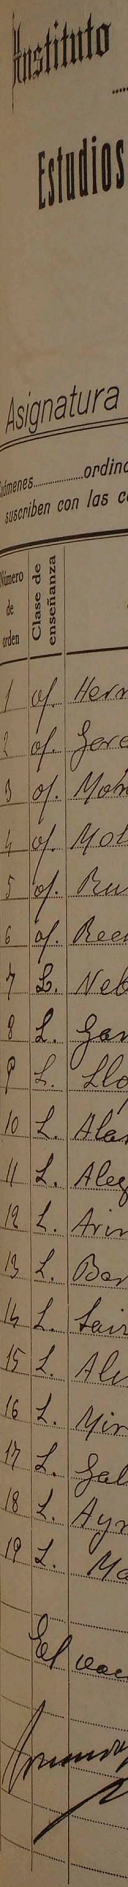 Instituto
Estudios
Asignatura
ordina
suscriben con las c
Número de orden
Clase de enseñanza
1 of. Hern
2 of.
3 of.
4 of. Mol
5 of. Ru
6 of.
7 L. Neb
8 L. Gar
9 L. Llo
10 L. Ala
11 L. Aleg
12 L. Arin
13 L. Bar
14 L. Sain
15 L.
16 L. Mir
17 L. Gal
18 L. Ayr
19 L. Ma
El